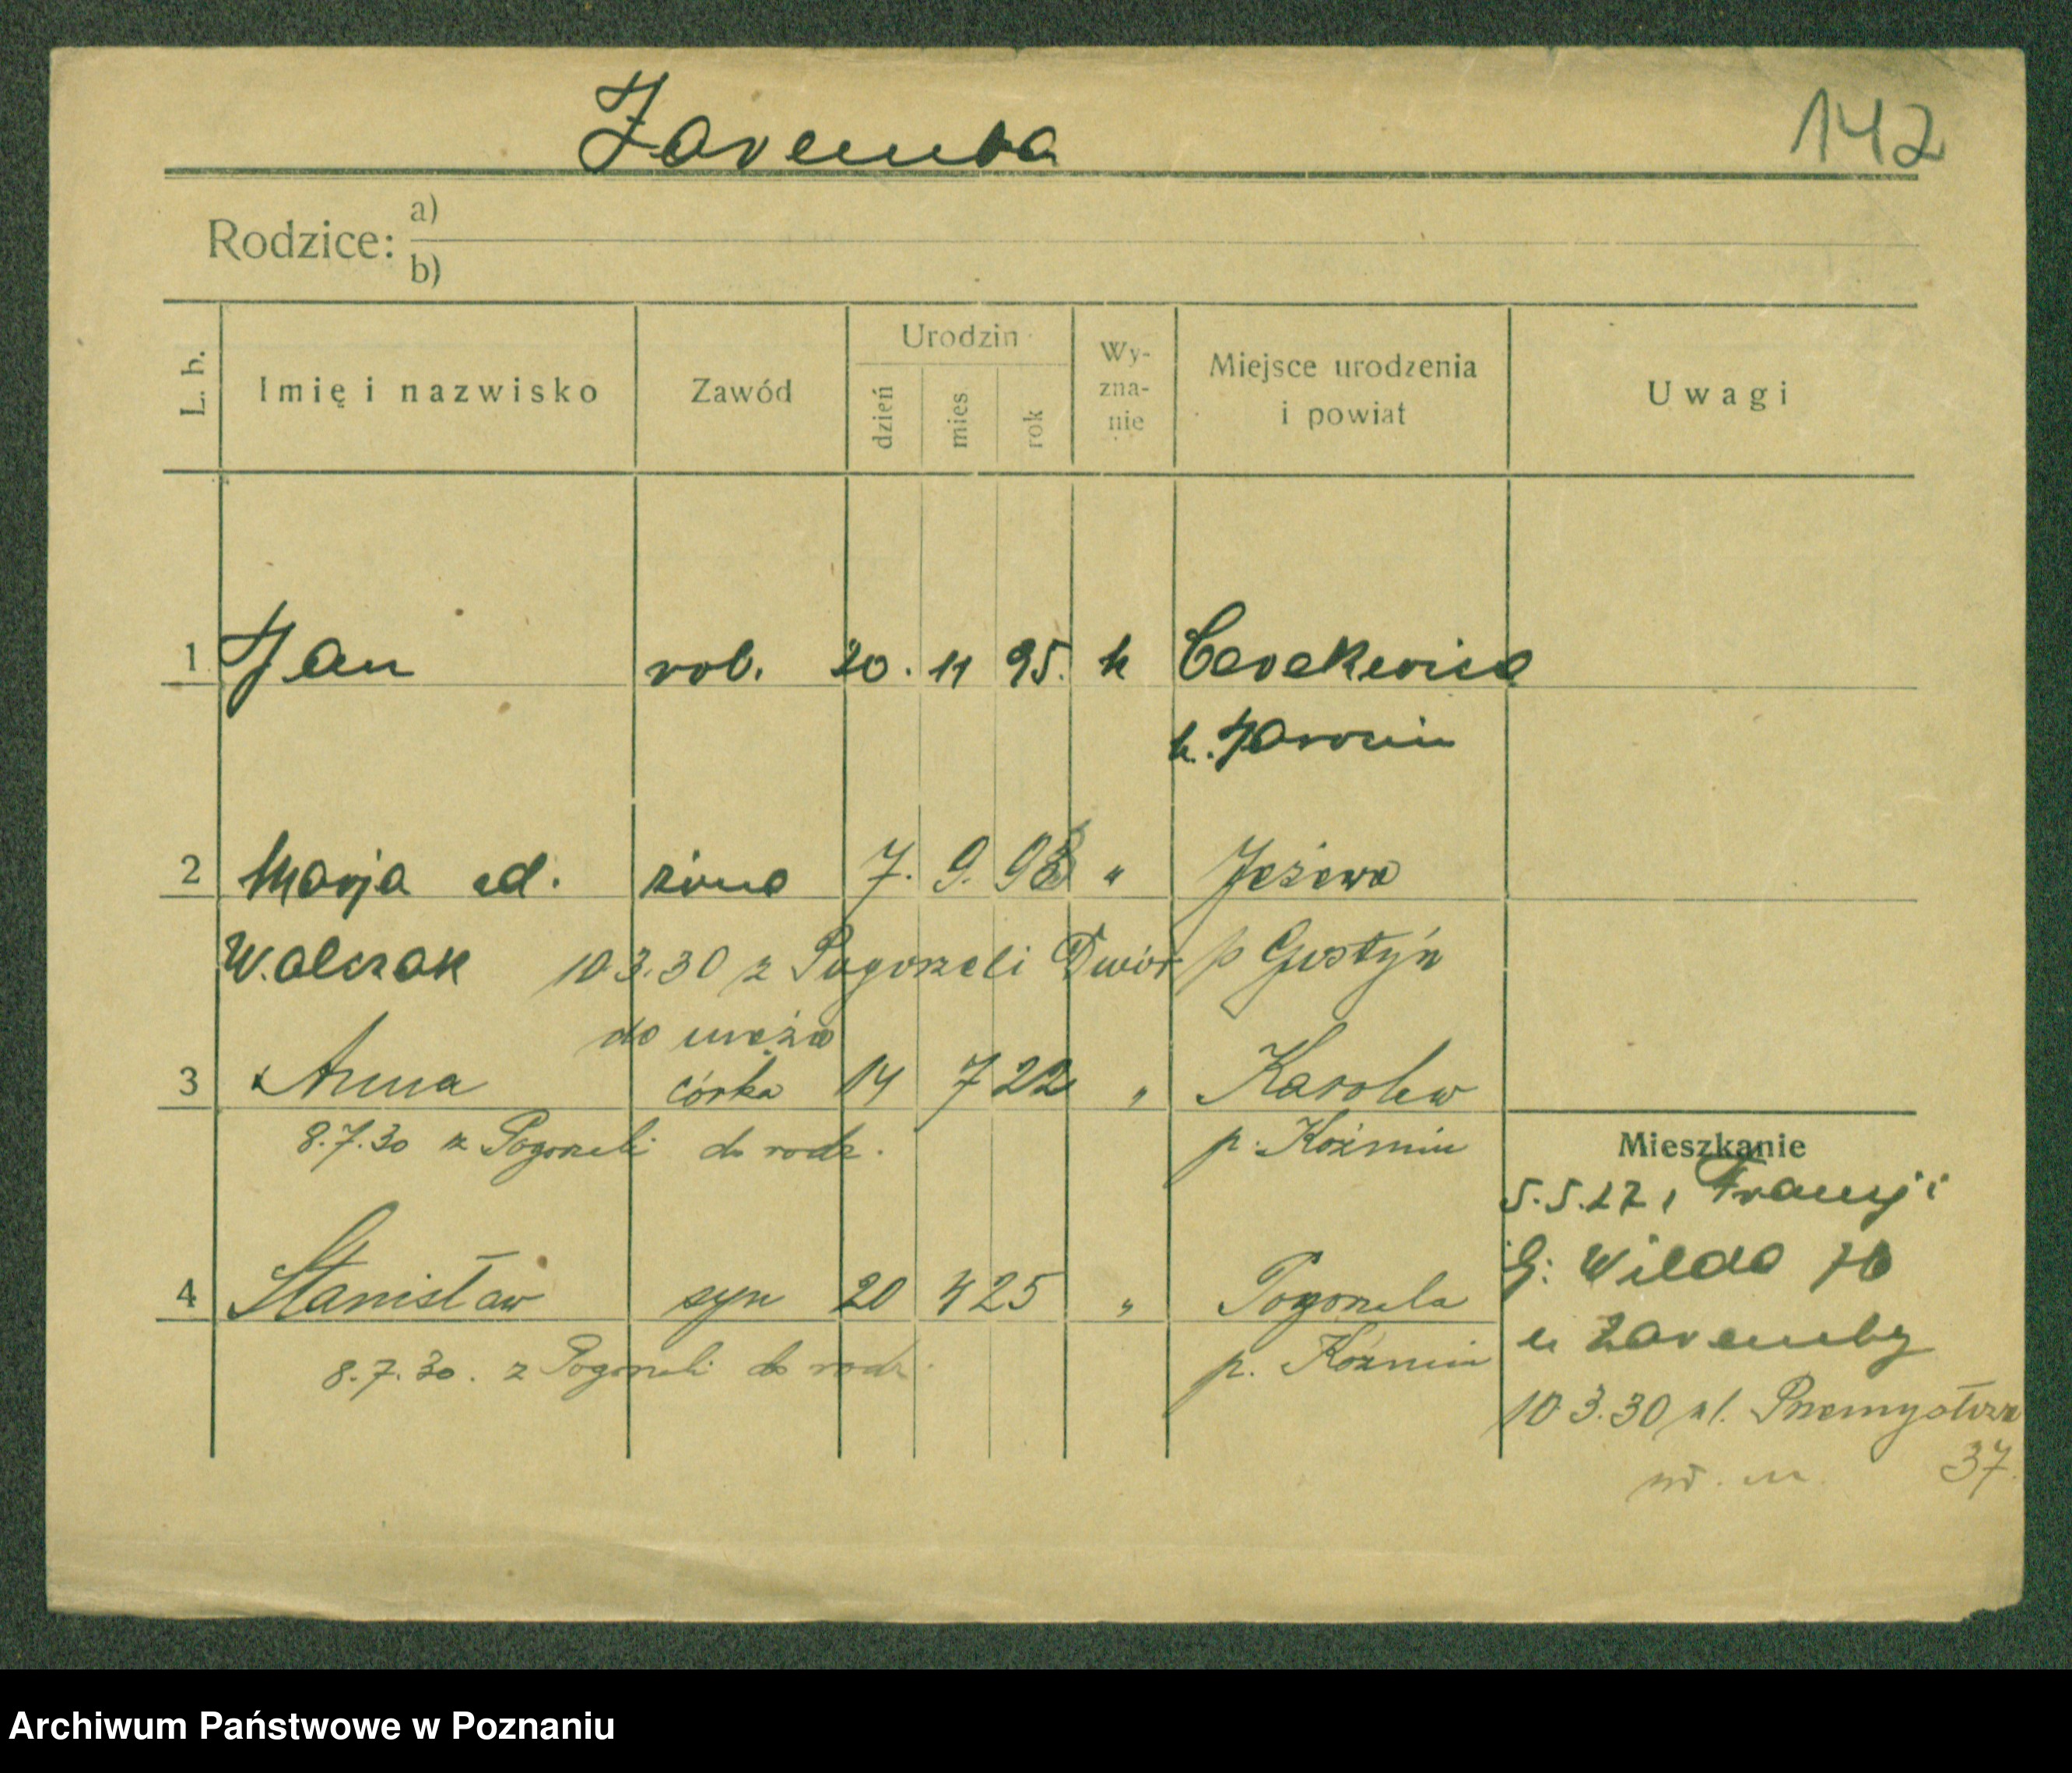 Zaremba
142
Rodzice: a)
b)
L. b.
Imię i nazwisko
Zawód
Urodzin
dzień
mies
rok
Wy-
zna-
nie
Miejsce urodzenia
i powiat
Uwagi
1 Jan rob. 20. 11 95. k Cerekwica
k. Jarocin
2 Marja ed. żona 7. 9. 98 „ Jeżewo
Walczak 10 3.30 z Pogorzeli Dwór p Gostyń
do męża
3 Anna córka 14 7 22 „ Karolew
8.7.30 z Pogorzeli do rodz. p. Koźmin
Mieszkanie
5.5.27, Francji
G: Wilda 76
u Zaremby
4 Stanisław syn 20 4 25 „ Pogorzela
8.7.30. z Pogorzeli do rodz. p. Koźmin
10 3.30 ul. Przemysłowa
37.
Archiwum Państwowe w Poznaniu